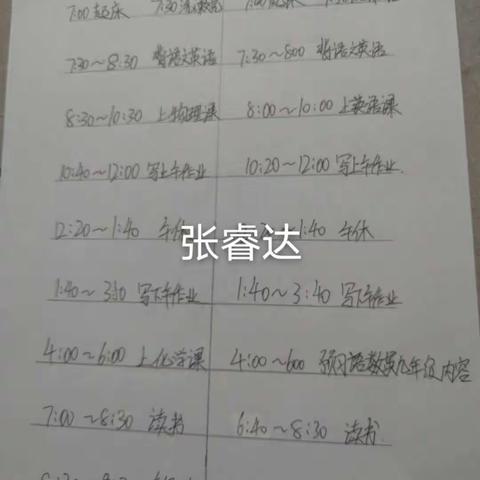 7:00 起床 7:30 7:00
7:30~8:30 背语文英语 7:30~800 背语文英语
8:30~10:30 上物理课 8:00~10:00 上英语课
10:40~12:00 写上午作业 10:20~12:00 写上午作业.
12:20~1:40 午休 1:40 午休
张睿达
1:40~3:10 写下午作业 1:40~3:40 写下午作业
4:00~6:00 上化学课 4:00~600 预习语数英九年级内容
7:00~8:30 读书 6:40~8:30 读书.